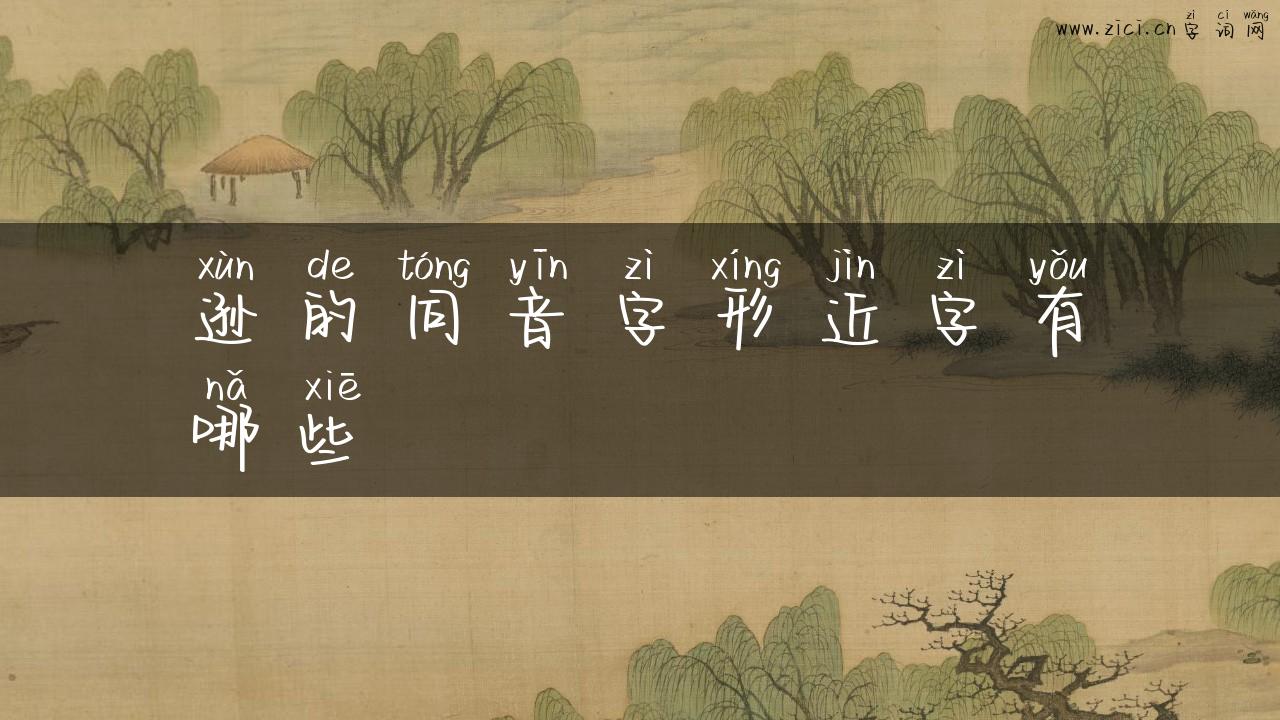 zì cí wǎng
www.zici.cn 字词网
xùn de tóng yīn zì xíng jìn zì yǒu
逊的同音字形近字有
nǎ xiē
哪些